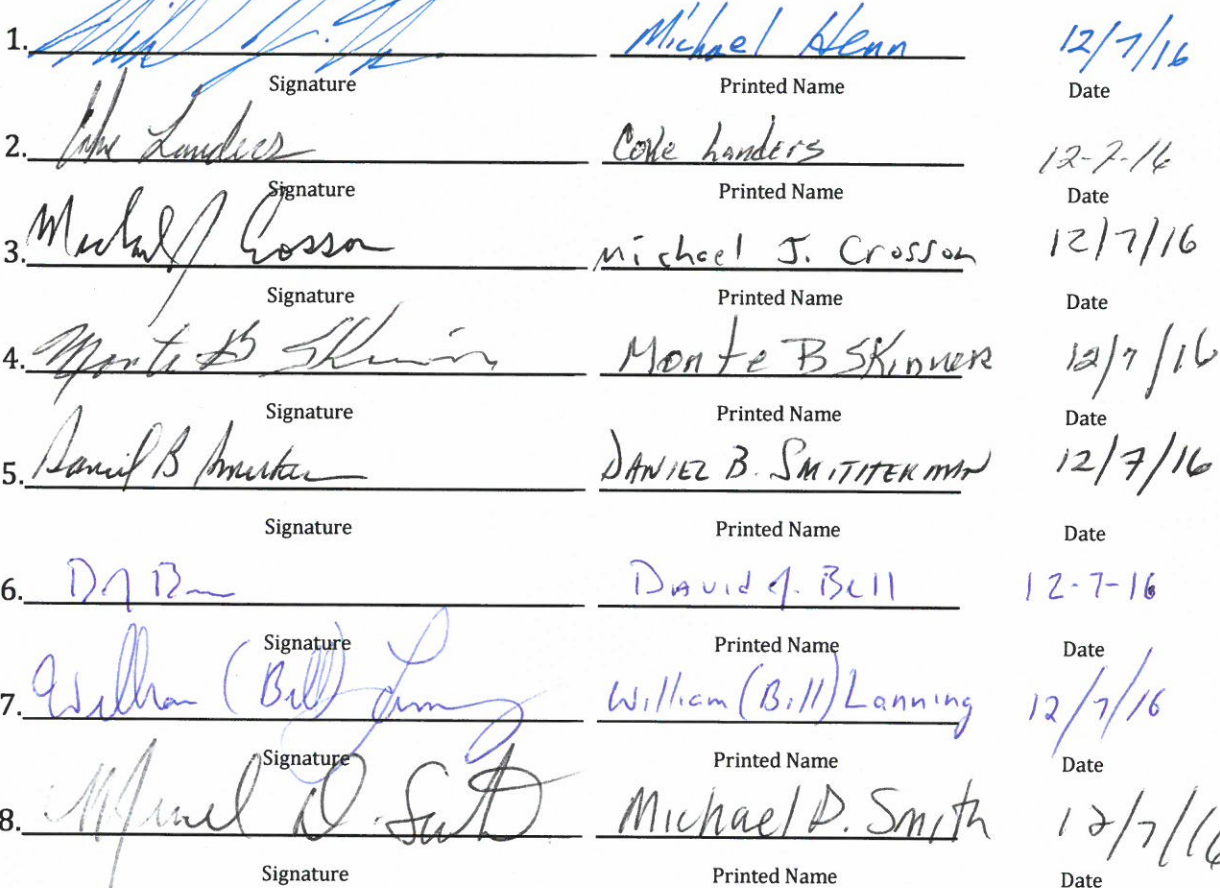 1. Michael Henn 12/7/16
Signature Printed Name Date
2. Landers Coke Landers 12-7-16
Signature Printed Name Date
3. Michael J Crosson Michael J. Crosson 12/7/16
Signature Printed Name Date
4. Monte B Skinner Monte B SKinner 12/7/16
Signature Printed Name Date
5. Daniel B DANIEL B. SMITHERMAN 12/7/16
Signature Printed Name Date
6. David J. Bell 12-7-16
Signature Printed Name Date
7. William (Bill) Lanning William (Bill) Lanning 12/7/16
Signature Printed Name Date
8. Michael D. Smith Michael D. Smith 12/7/16
Signature Printed Name Date